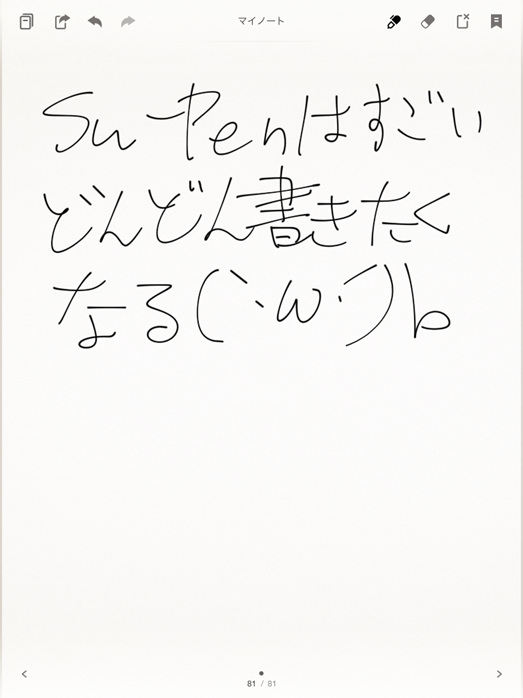 マイノート
Su-Penはすごい
どんどん書きたく
なる(`･ω･´)b
81 / 81